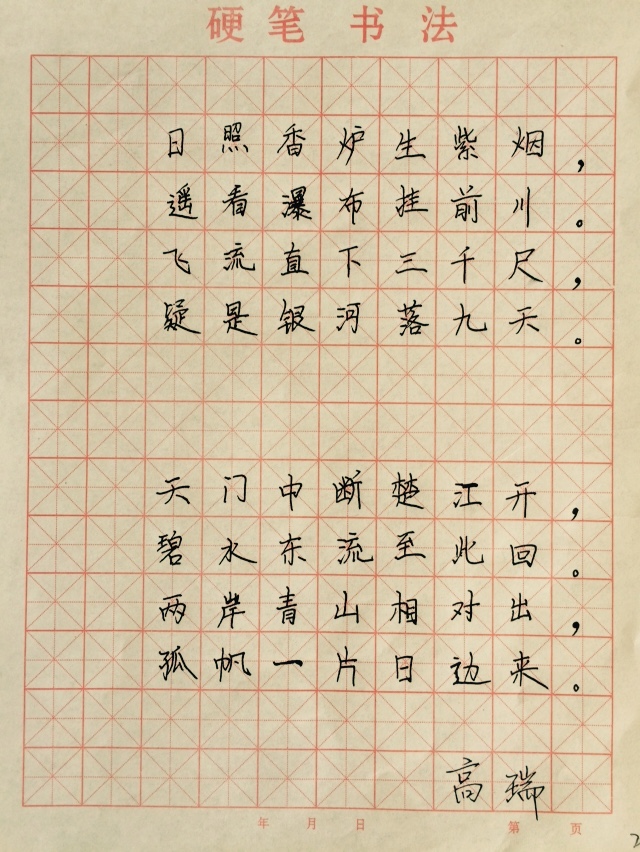 硬笔书法
日照香炉生紫烟，
遥看瀑布挂前川。
飞流直下三千尺，
疑是银河落九天。
天门中断楚江开，
碧水东流至此回。
两岸青山相对出，
孤帆一片日边来。
高瑞
年 月 日 第 页